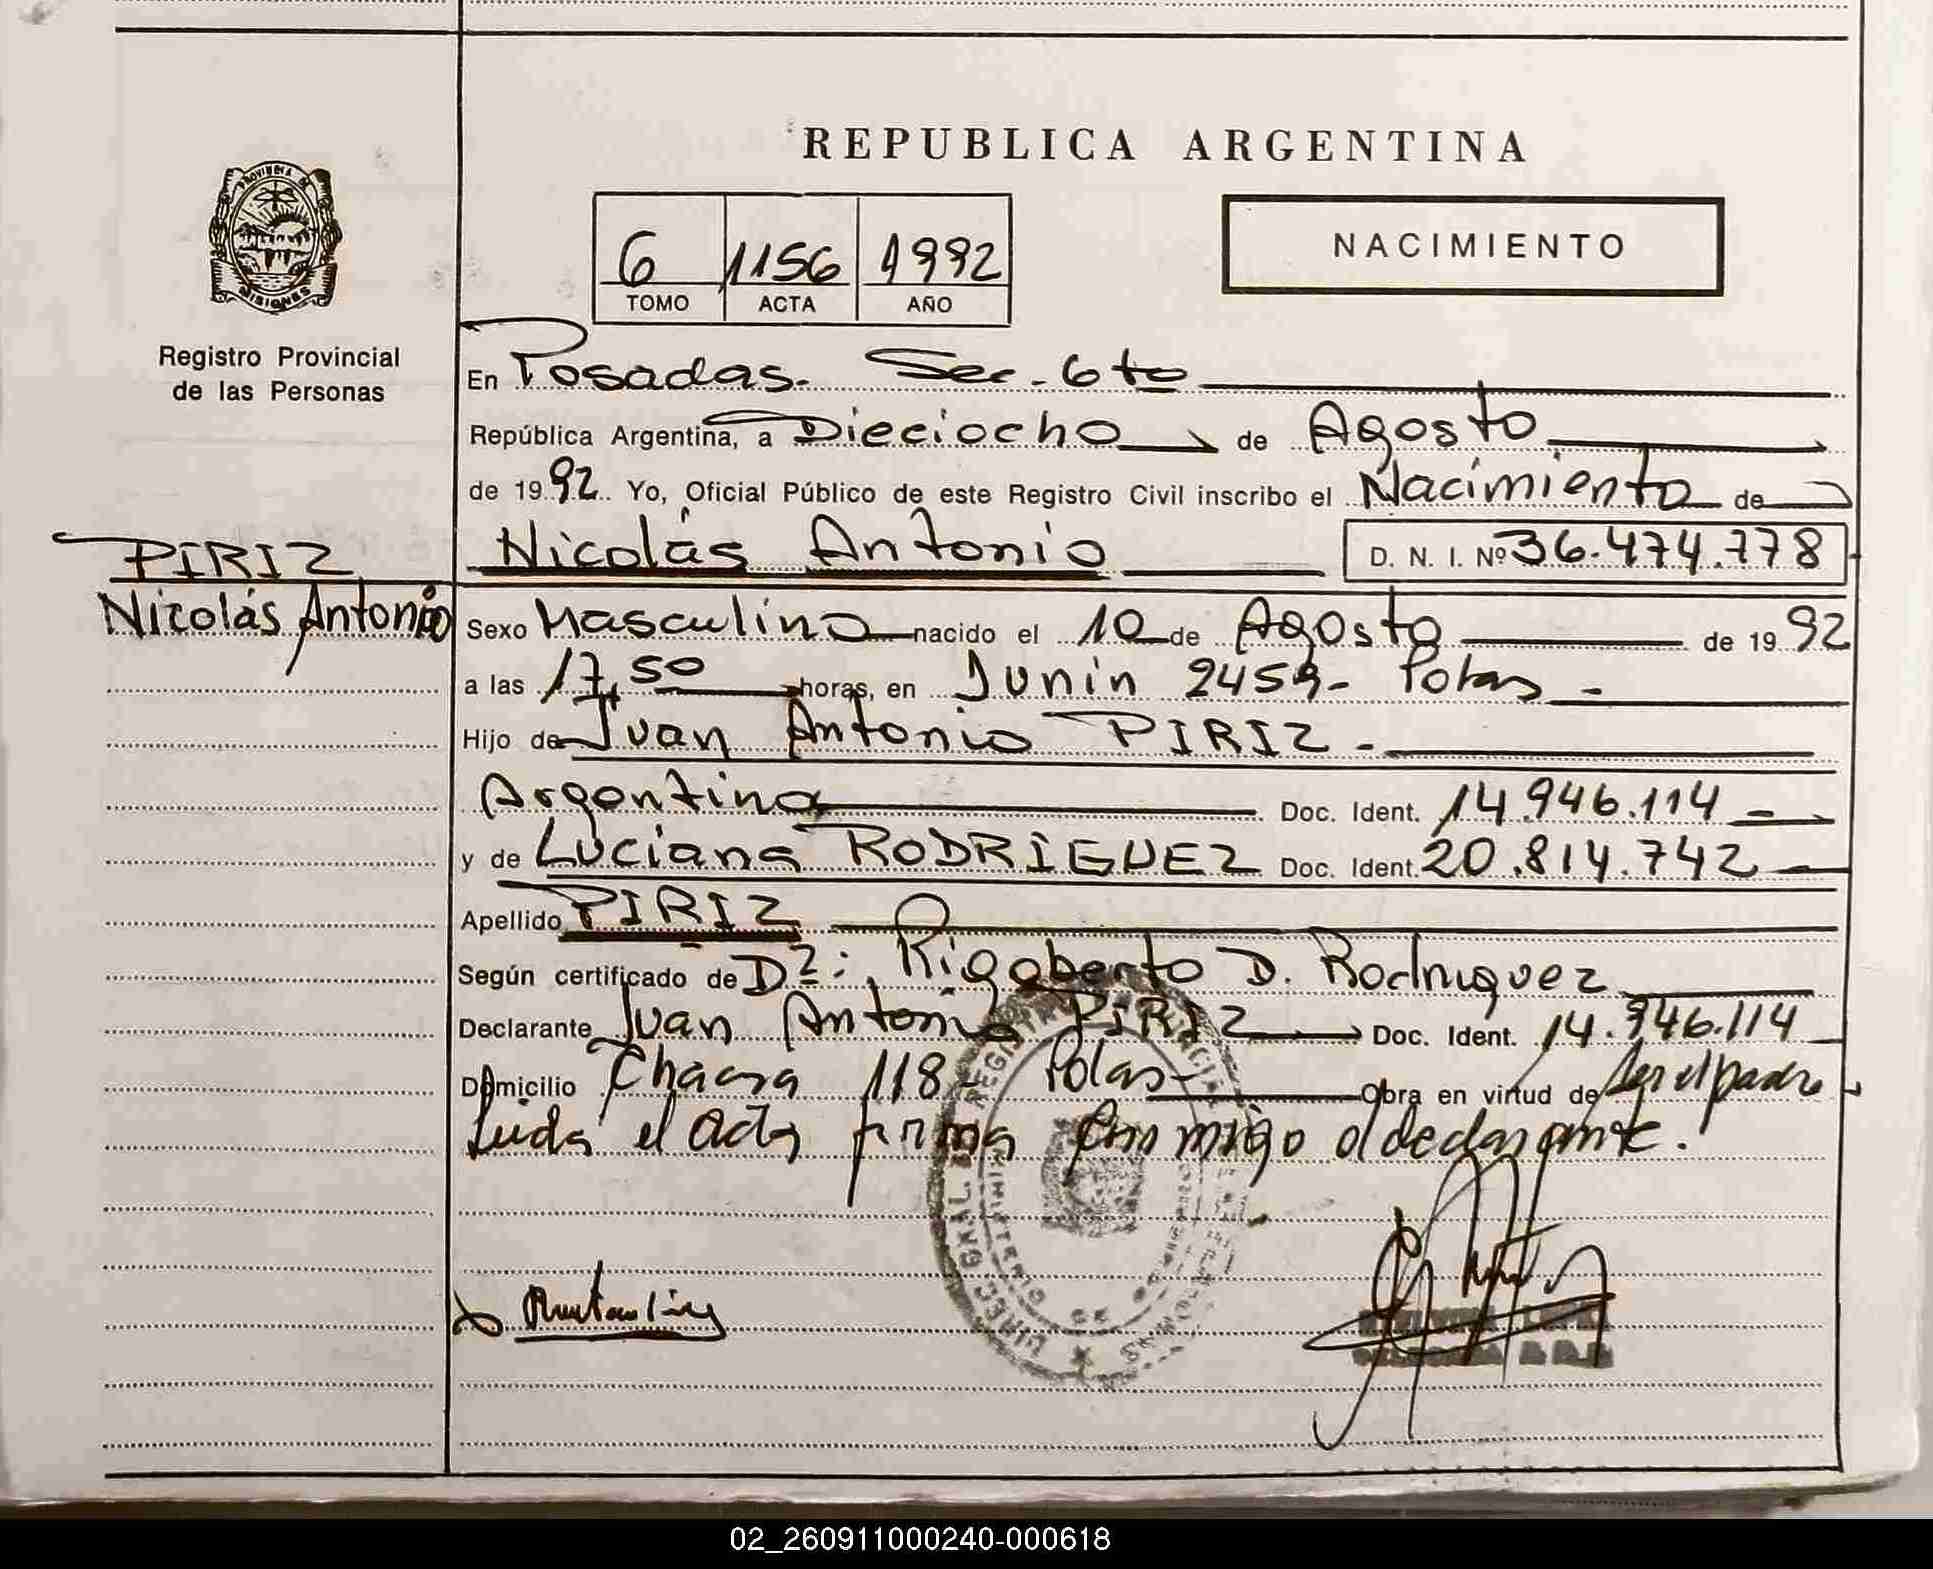 REPUBLICA ARGENTINA
PROVINCIA DE
MISIONES
Registro Provincial
de las Personas
6 1156 1992
TOMO ACTA AÑO
NACIMIENTO
En Posadas. Sec. 6to
República Argentina, a Dieciocho de Agosto
de 1992. Yo, Oficial Público de este Registro Civil inscribo el Nacimiento de
PIRIZ
Nicolás Antonio
Nicolás Antonio D. N. I. Nº 36.474.778
Sexo Masculino nacido el 10 de Agosto de 1992
a las 17,50 horas, en Junin 2459- Pdas -
Hijo de Juan Antonio PIRIZ -
Argentino Doc. Ident. 14.946.114
y de Luciana RODRIGUEZ Doc. Ident. 20.814.742
Apellido PIRIZ
Según certificado de Dr: Rigoberto D. Rodriguez
Declarante Juan Antonio PIRIZ Doc. Ident. 14.946.114
Domicilio Chacra 118- Pdas- Obra en virtud de ser el padre
Leida el acta firma conmigo el declarante.
02_260911000240-000618